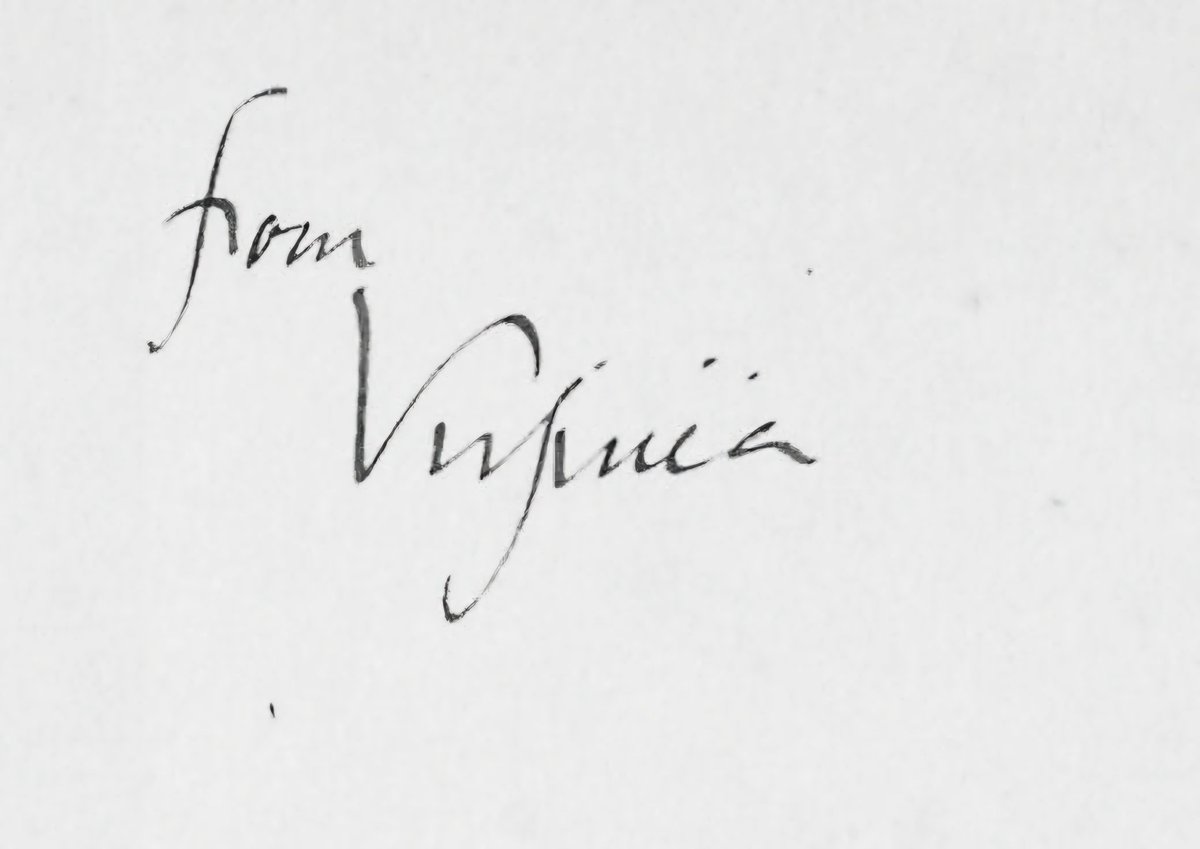 from
Virginia